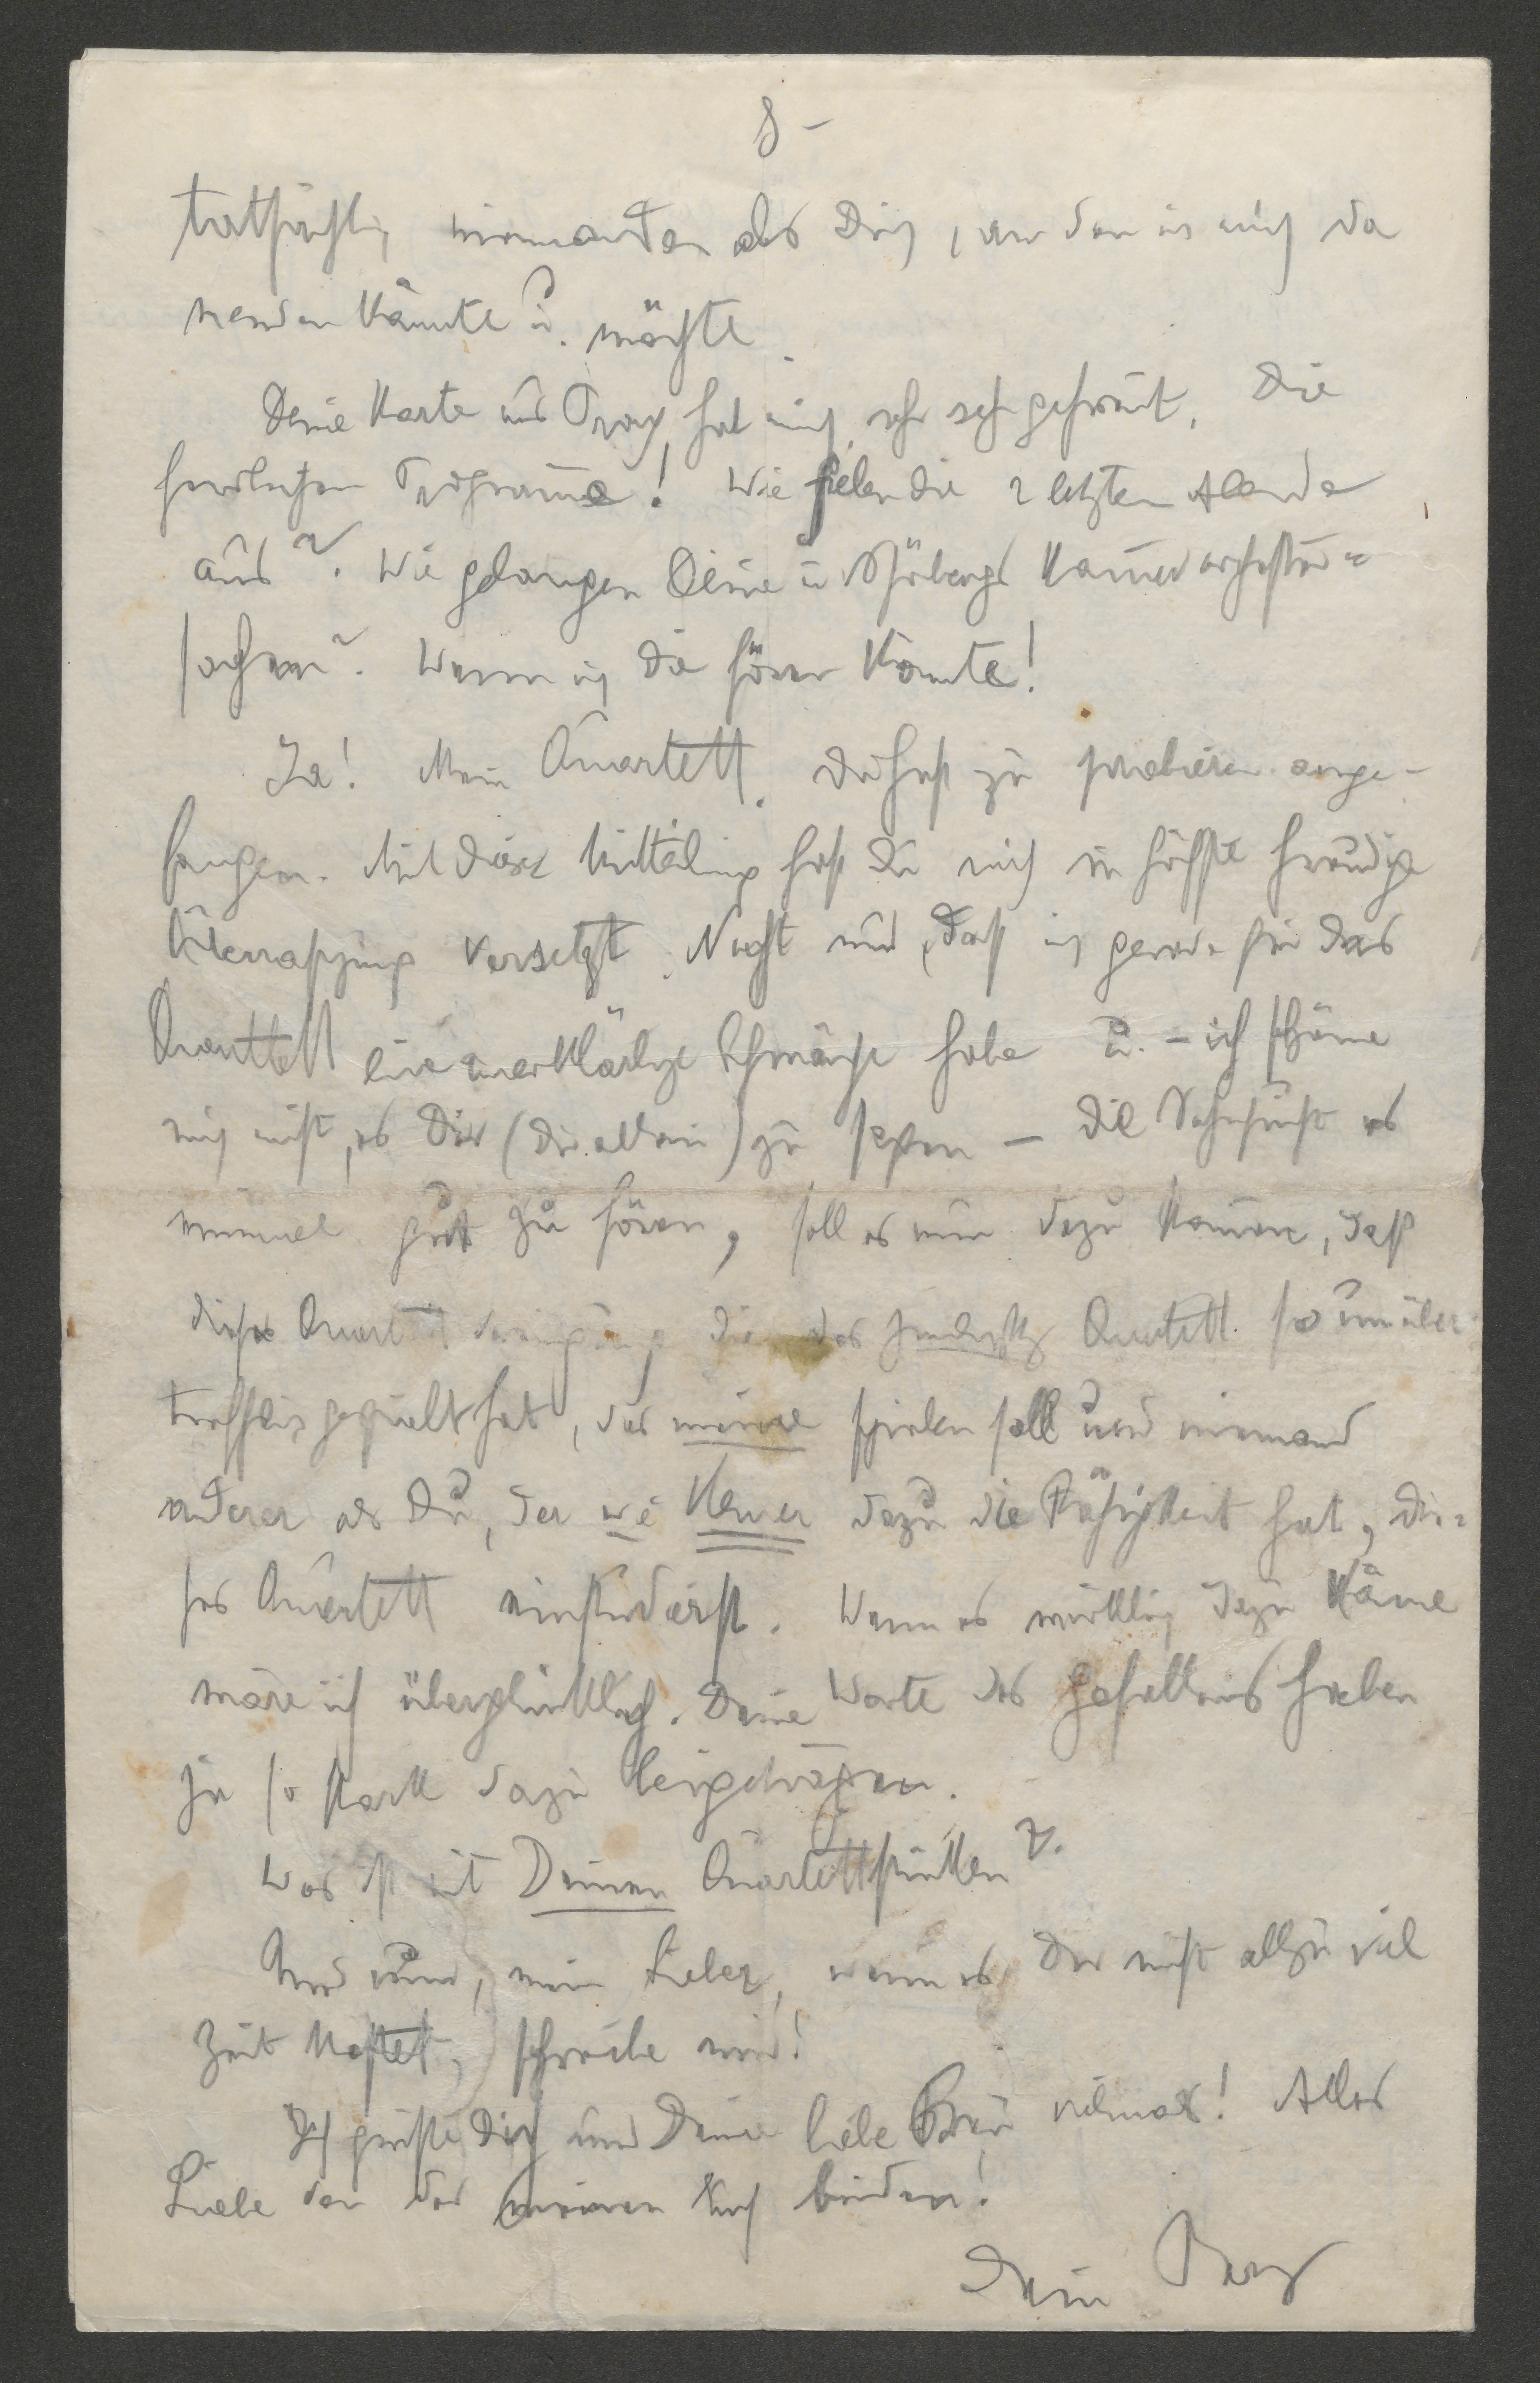 8 –
tatsächlich niemanden als Dich, an den ich mich da
wenden könnte u. möchte.
Deine Karte aus Prag hat mich sehr sehr gefreut. Die
herrlichen Programme! Wie fielen die 2 letzten Abende
aus? Wie gelangen Deine u Schönbergs Kammerorchester=
sachen? Wenn ich die hören könnte!
Ja! Mein Quartett. Du hast zu probieren ange-
fangen. Mit dieser Mitteilung hast Du mich in höchste freudige
Überraschung versetzt. Nicht nur, daß ich gerade für das
Quartett eine unerklärliche Schwäche habe u. – ich schäme
mich nicht, es Dir (Dir allein) zu sagen – die Sehnsucht es
einmal gut zu hören, soll es nun dazu kommen, daß
dieses Quart die das Quartett so unüber
trefflich gespielt hat, das meine spielen soll und niemand
anderer als Du, der wie Keiner dazu die Fähigkeit hat, die=
ses Quartett einstudierst. Wenn es wirklich dazu käme
wäre ich überglücklich. Deine Worte des Gefallens haben
ja so stark dazu beigetragen.
Was ist mit Deinen Quartettstücken?
Und nun, mein Lieber, wenn es Dir nicht allzu viel
Zeit kostet, schreibe mir!
Ich grüße Dich und Deine liebe Frau vielmals! Alles
Liebe von der meinen Euch beiden!
Dein Berg